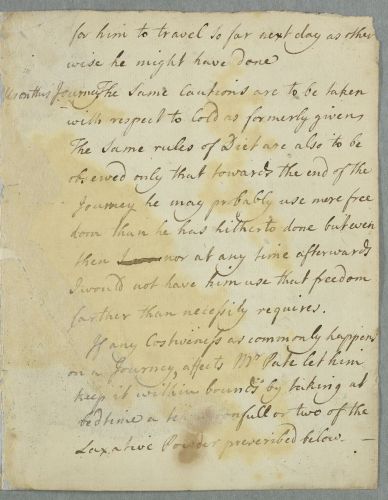 for him to travel so far next day as other
wise he might have done
Upon this Journey The Same Cautions are to be taken
with respect to Cold as formerly given,
The Same rules of Diet are also to be
obserwed only that towards the end of the
Journey he may probably use more free
dom than he has hitherto done but even
then nor at any time afterwards
I would not have him use that freedom
farther than necessity requires.
If any Costiveness as commonly happens
on a Journey, affects Mr Pate let him
keep it within bounds by taking at
bedtime a teaspoonfull or two of the
Laxative Powder prescribed below. —